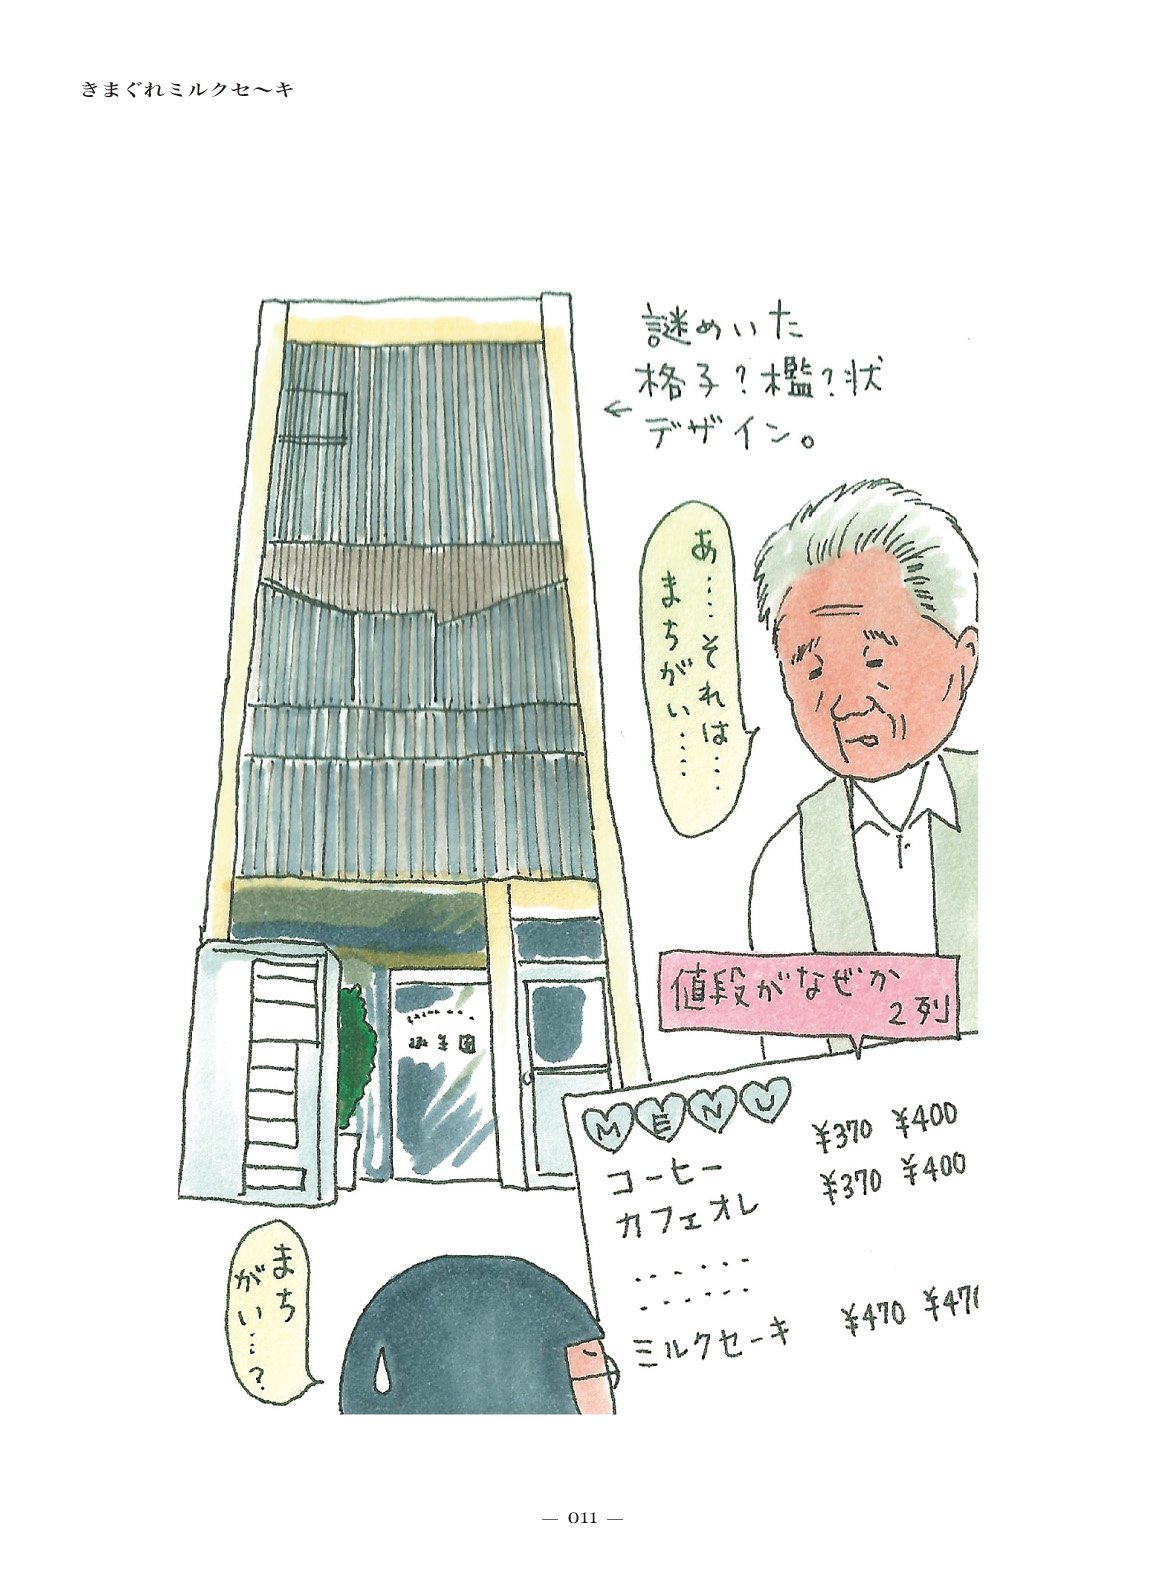 きまぐれミルクセ〜キ
謎めいた
格子？檻？状
← デザイン。
あ……それは……
まちがい……
値段がなぜか
2列
MENU
コーヒー ¥370 ¥400
カフェオレ ¥370 ¥400
‥‥‥
‥‥‥
ミルクセーキ ¥470 ¥470
まち
がい…？
— 011 —